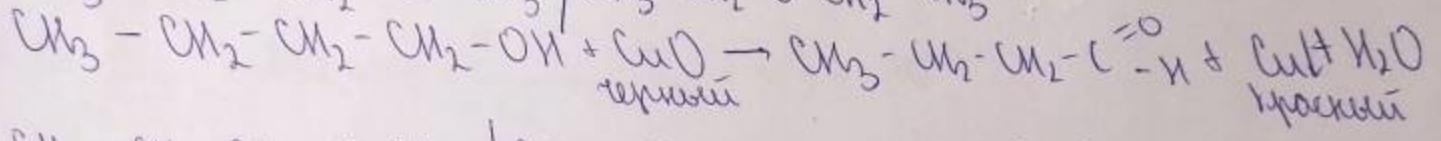 CH₃ - CH₂ - CH₂ - CH₂ - OH + CuO → CH₃ - CH₂ - CH₂ - C =O -H + Cu↓ + H₂O
черный красный